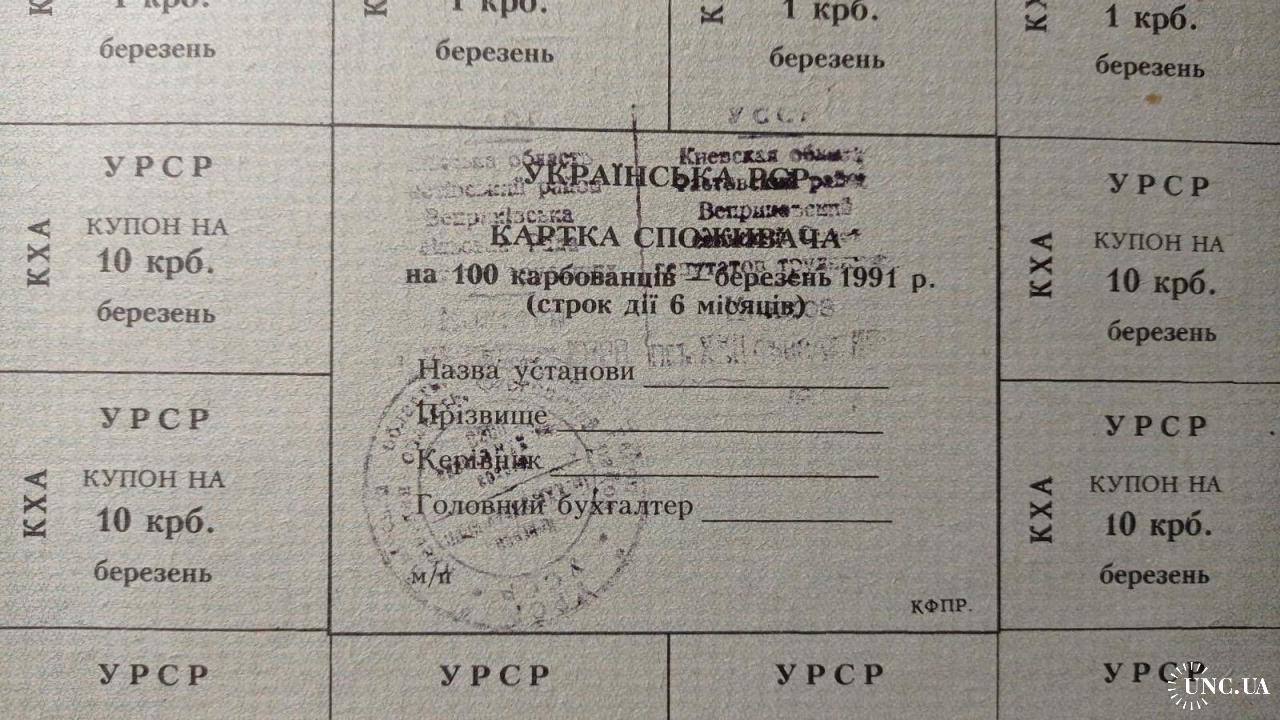 1 крб.
березень
1 крб.
березень
1 крб.
березень
КХА
1 крб.
березень
УРСР
КХА
КУПОН НА
10 крб.
березень
УРСР
КХА
КУПОН НА
10 крб.
березень
УССР
Киевская
область
УКРАЇНСЬКА РСР
КАРТКА СПОЖИВАЧА
на 100 карбованців — березень 1991 р.
(строк дії 6 місяців)
Назва установи
Прізвище
Керівник
Головний бухгалтер
м/п
КФПР.
УРСР
КХА
КУПОН НА
10 крб.
березень
УРСР
КХА
КУПОН НА
10 крб.
березень
УРСР
УРСР
УРСР
УРСР
UNC.UA